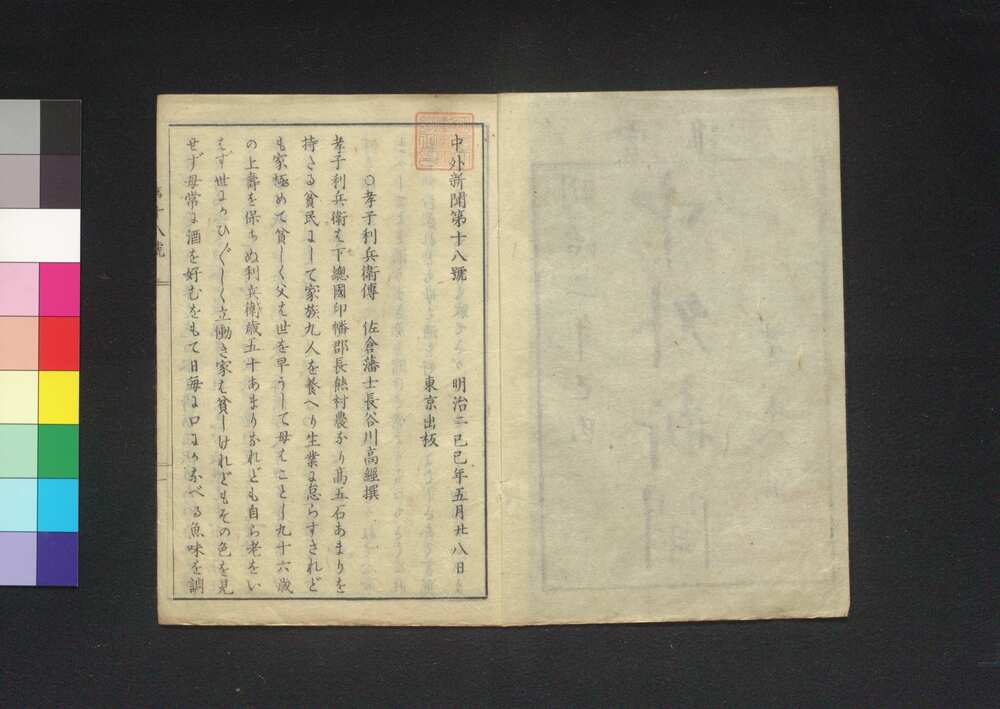 中外新聞第十八號 明治二己巳年五月廿八日
東京出板
○孝子利兵衛傳 佐倉藩士長谷川高經撰
孝子利兵衛は下總國印幡郡長熊村農なり高五石あまりを
持さる貧民にして家族九人を養へり生業に怠らすされど
も家極めて貧しく父は世を早うして母はことし九十六歳
の上壽を保ちぬ利兵衛歳五十あまりなれども自ら老をい
はず世にかひ〴〵しく立働き家は貧しけれどもその色を見
せず母常に酒を好むをもて日毎に口にかなへる魚味を調
第十八號
一